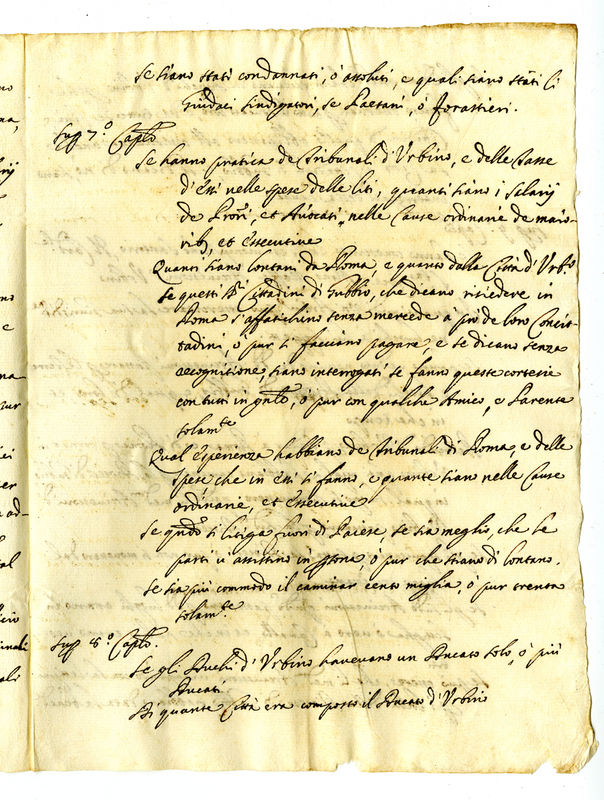 se siano stati condannati, ò assoluti, e quali siano stati li
Giudici sindigatori, se Paesani, ò forastieri.
Supp 7.º Caplo.
Se hanno pratica de Tribunali d'Urbino, e delle Tasse
d'essi nelle spese delle liti, quanti siano i salarij
de Prori, et Avocati, nelle Cause ordinarie de maio-
ribs, et essecutive
Quanti siano lontani da Roma, e quanto dalla Città d'Urbo
se questi SSri Cittadini di Gubbio, che dicano risiedere in
Roma s'affatichino senza mercede à prò de loro Concit-
tadini, ò pur si facciano pagare, e se dicano senza
recognitione, siano interrogati se fanno queste cortesie
con tutti in gnle, ò pur con qualche Amico, e Parente
solamte
Qual esperienza habbiano de Tribunali di Roma, e delle
spese che in essi si fanno, e quante siano nelle Cause
ordinarie, et essecutive
Se qndo si litiga fuori di Paiese, se sia meglio, che le
parti vi assistino in psona, ò pur che stiano di lontano.
se sia più commodo il caminar cento miglia, ò pur trenta
solamte
Supp 8.º Caplo.
Se gli Duchi d'Urbino havevano un Ducato solo, ò più
Ducati.
Di quante Città era composto il Ducato d'Urbino